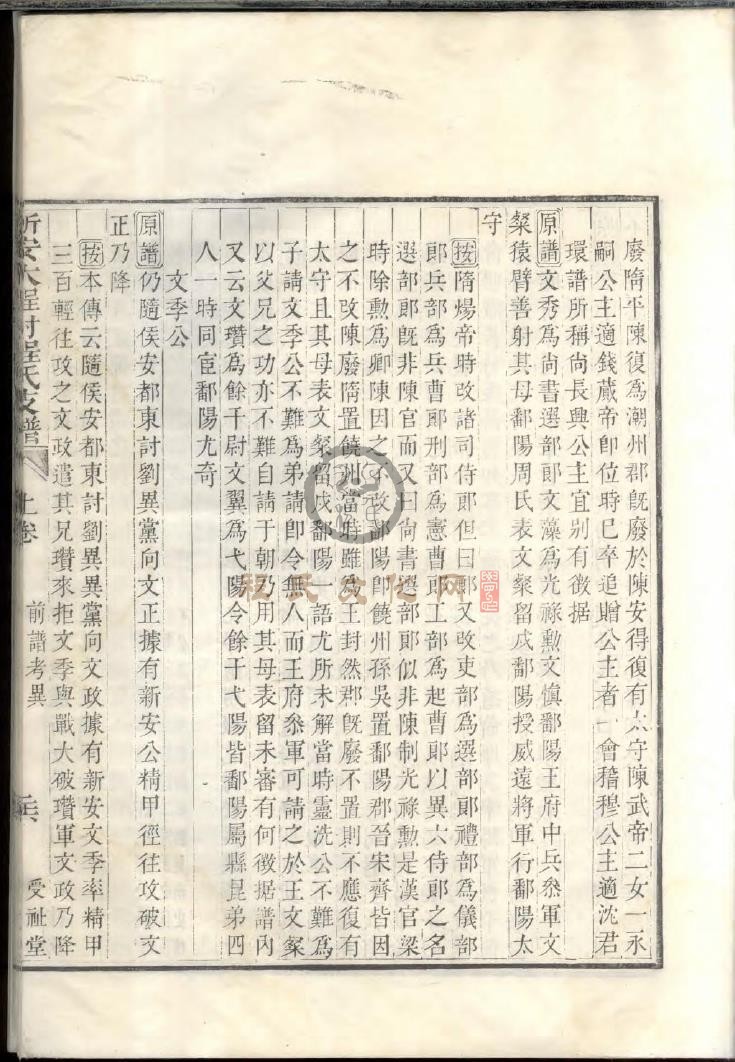 廢隋平陳復爲潮州郡旣廢於陳安得復有太守陳武帝二女一永
嗣公主適錢蕆帝卽位時已卒追贈公主者一會稽穆公主適沈君
環譜所稱尚長興公主宜別有徵据
原譜文秀爲尚書選部郞文藻爲光祿勲文愼鄱陽王府中兵叅軍文
粲猿臂善射其母鄱陽周氏表文粲畱戍鄱陽授威遠將軍行鄱陽太
守
按隋煬帝時改諸司侍郞但曰郞又改吏部爲選部郞禮部爲儀部
郞兵部爲兵曹郞刑部爲憲曹郞工部爲起曹郞以異六侍郞之名
選部郞旣非陳官而又曰尚書選部郞似非陳制光祿勲是漢官梁
時除勲爲卿陳因之不改鄱陽卽饒州孫吳置鄱陽郡晉宋齊皆因
之不改陳廢隋置饒州當時雖爲王封然郡旣廢不置則不應復有
太守且其母表文粲畱戍鄱陽一語尤所未解當時靈洗公不難爲
子請文季公不難爲弟請卽令無人而王府叅軍可請之於王文粲
以父兄之功亦不難自請于朝乃用其母表留未審有何徵据譜內
又云文瓚爲餘干尉文翼爲弋陽令餘干弋陽皆鄱陽屬縣昆弟四
人一時同宦鄱陽尤奇
文季公
原譜仍隨侯安都東討劉異黨向文正據有新安公精甲徑往攻破文
正乃降
按本傳云隨侯安都東討劉異異黨向文政據有新安文季率精甲
三百輕往攻之文政遣其兄瓚來拒文季與戰大破瓚軍文政乃降
新安大程村程氏支譜 上卷 前譜考異 受祉堂
程氏文化网